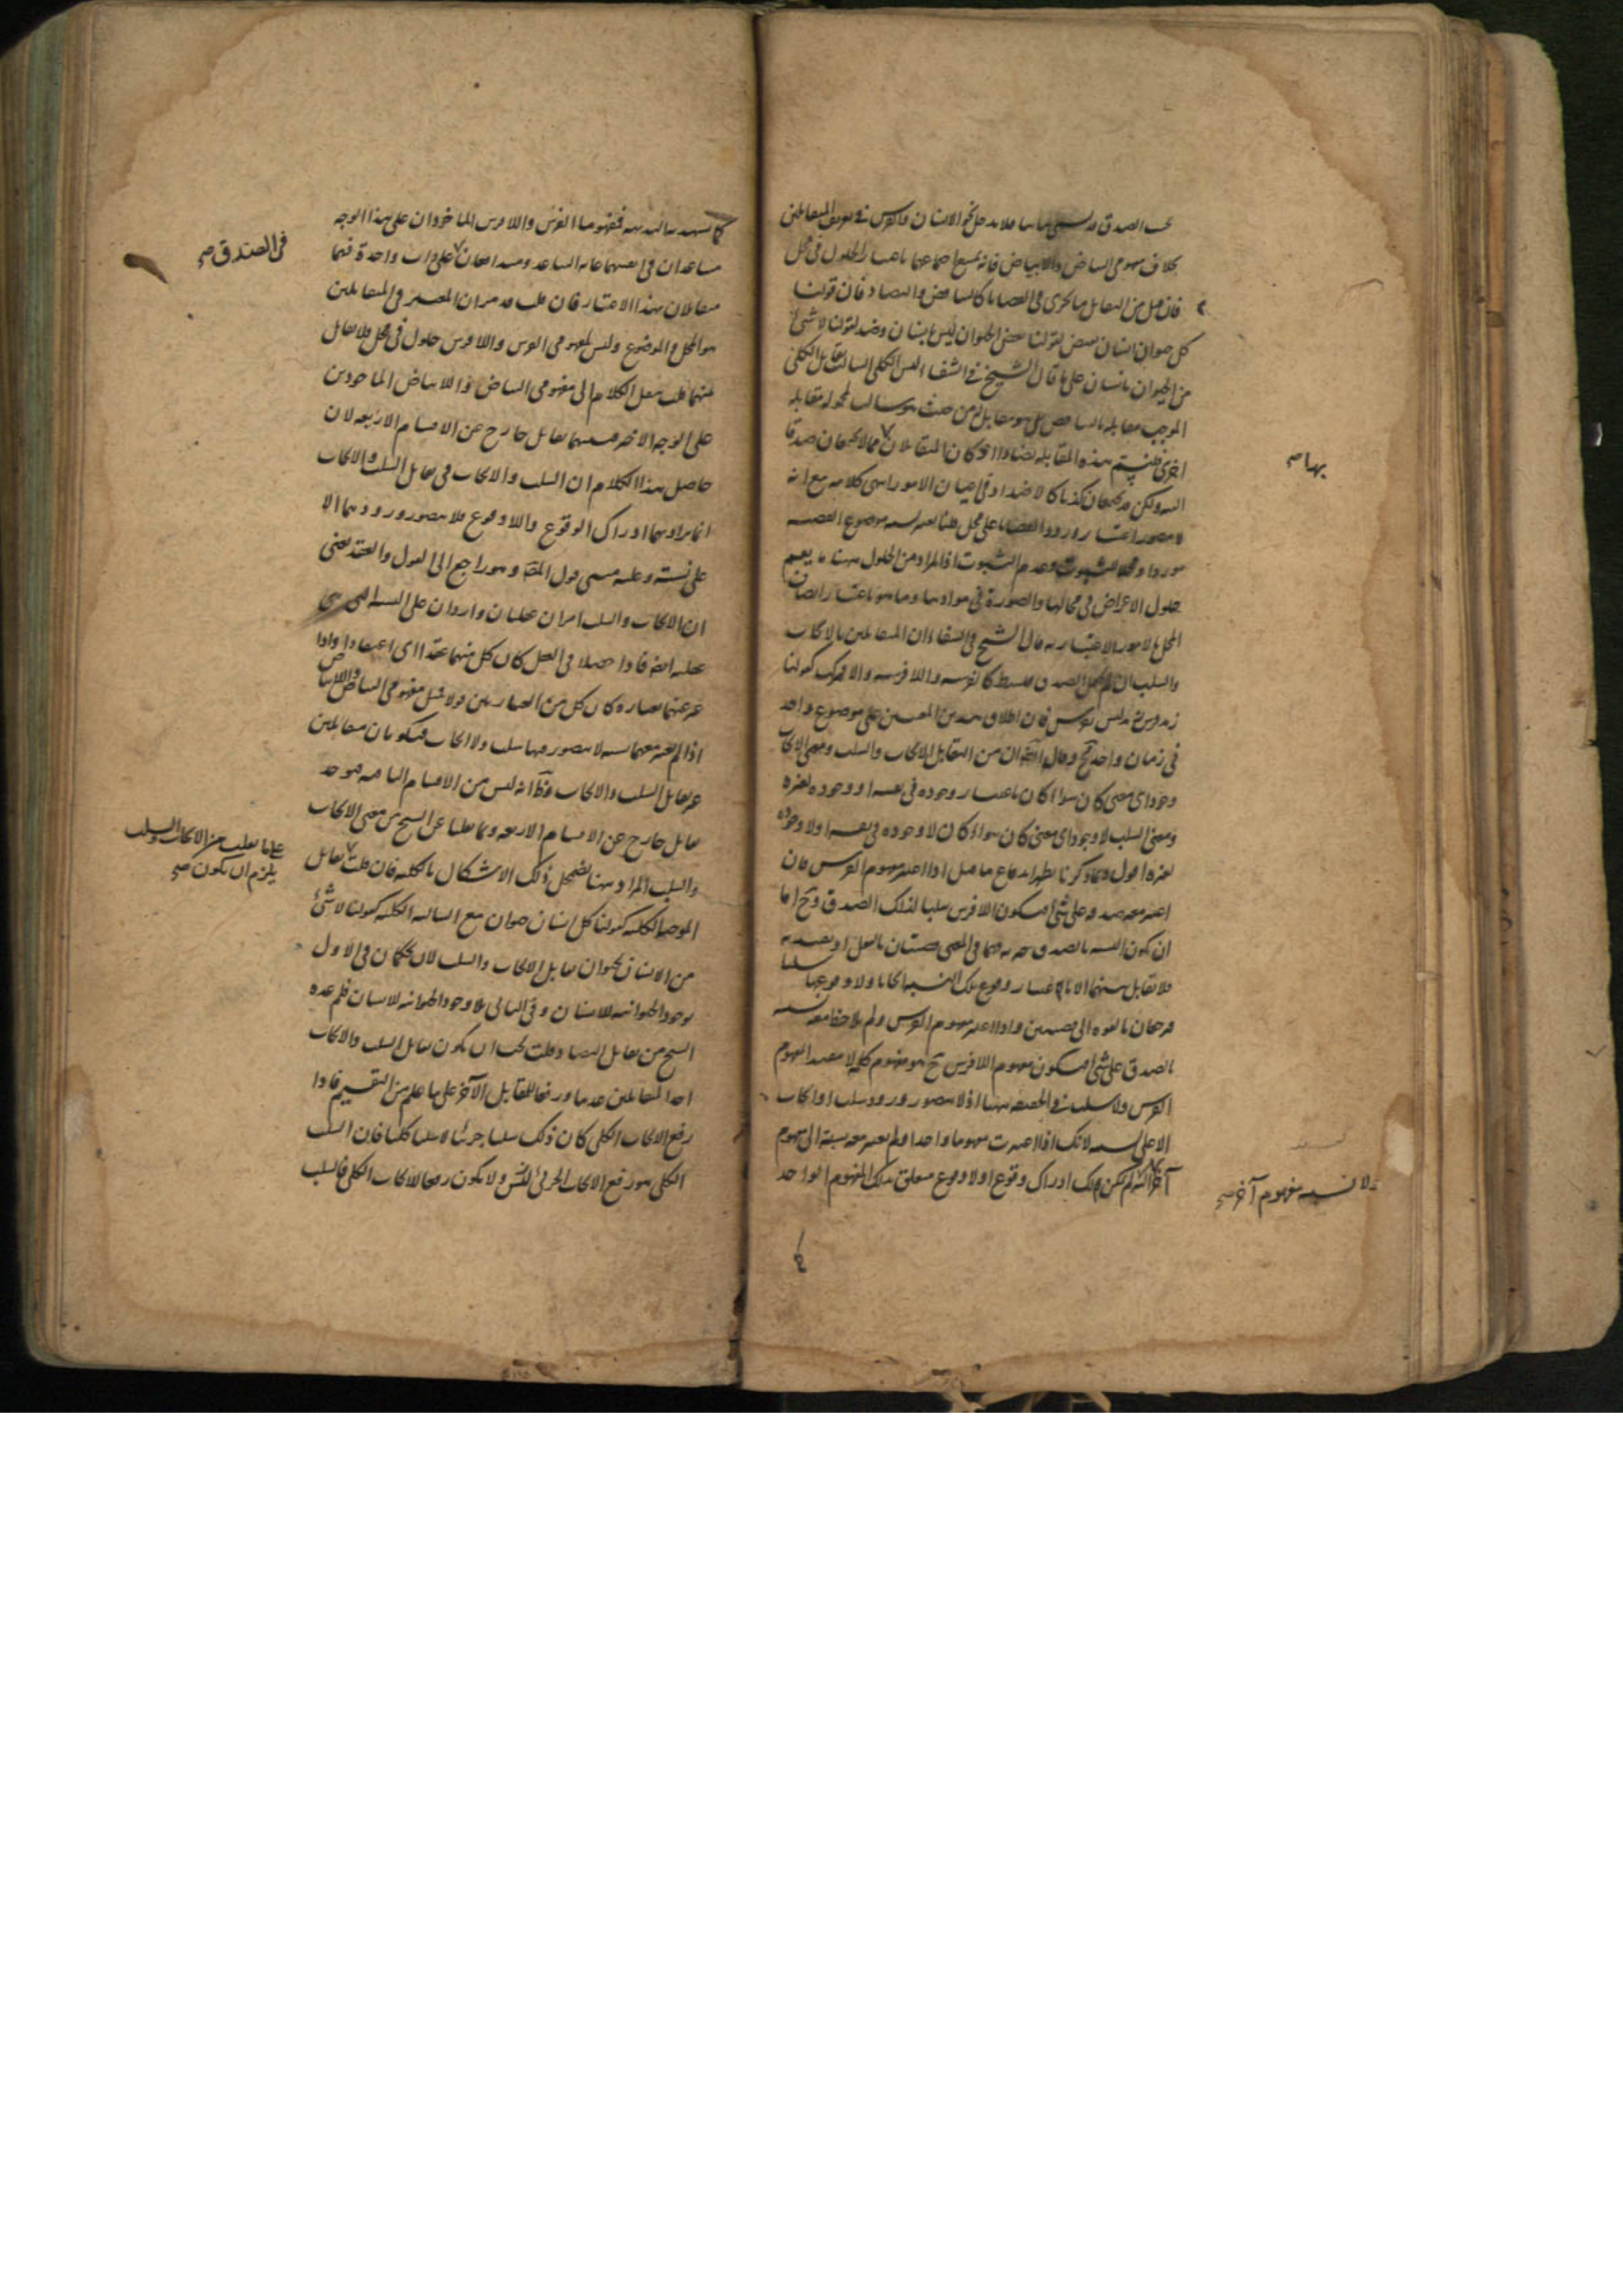 بحسب الصدق فلا يدخل نحو الانسان والفرس في تعريف المتقابلين
بخلاف مفهومي البياض واللابياض فانه يمتنع اجتماعهما باعتبار الحلول في محل
فان قيل من التقابل ما يجرى في القضايا كالتناقض والتضاد فان قولنا
كل حيوان انسان نقيض لقولنا بعض الحيوان ليس بانسان وضد لقولنا لا شئ
من الحيوان بانسان على ما قال الشيخ في الشفاء ليس الكلى السالب يقابل الكلى
الموجب مقابلة بالتناقض بل هو مقابل له من حيث هو سالب لمحموله مقابلة
اخرى فلنسم هذه المقابلة تضادا اذ كان المتقابلان مما لا يجتمعان صدقا
البتة ولكن قد يجتمعان كذبا كالاضداد في اعيان الامور انتهى كلامه مع انه
لا يتصور اعتبار ورود القضايا على محل قلنا يعتبر موضوع القضية
موردا ومحلا للثبوت وعدم الثبوت اذ المراد من الحلول ههنا ما يعم
حلول الاعراض في محالها والصورة في موادها وما هو باعتبار اتصاف
المحل بالامور الاعتبارية قال الشيخ في الشفاء ان المتقابلين بالايجاب
والسلب ان لم يحتمل الصدق فبسيط كالفرسية واللافرسية والا فمركب كقولنا
زيد فرس زيد ليس بفرس فان اطلاق هذين المعنيين على موضوع واحد
في زمان واحد مح وقال ايضا ان من التقابل الايجاب والسلب ومعنى الايجاب
وجود اى معنى كان سواء كان باعتبار وجوده في نفسه او وجوده لغيره
ومعنى السلب لا وجود اى معنى كان سواء كان لا وجوده في نفسه او لا وجوده
لغيره اقول وبما ذكرنا يظهر اندفاع ما قيل اذا اعتبر مفهوم الفرس فان
اعتبر معه صدقه على شئ فيكون اللافرس سلبا لذلك الصدق وح اما
ان يكون النسبة بالصدق خبرية فهما في المعنى قضيتان بالفعل او تقييدية
فلا تقابل بينهما الا باعتبار وقوع تلك النسبة ايجابا ولا وقوعها سلبا
فيرجعان بالقوة الى قضيتين واذا اعتبر مفهوم الفرس ولم يلاحظ معه نسبة
بالصدق على شئ فيكون مفهوم اللافرس ح هو مفهوم كلمة لا مقيدا بمفهوم
الفرس ولا سلب في الحقيقة ههنا اذ لا يتصور ورود سلب او ايجاب
الا على نسبة لانك اذا اعتبرت مفهوما واحدا ولم تعتبر معه نسبة الى مفهوم
آخر لم يمكن لك ادراك وقوع او لا وقوع متعلق بذلك المفهوم الواحد
بها صح
ولا نسبة مفهوم آخر صح
كما تشهد به البديهة فمفهوما الفرس واللافرس الماخوذان على هذا الوجه
متباعدان في انفسهما غاية التباعد ومتدافعان على ذات واحدة فهما
متقابلان بهذا الاعتبار فان قلت قد مر ان المعتبر في المتقابلين
هو المحل والموضوع وليس لمفهومي الفرس واللافرس حلول في محل فلا تقابل
بينهما قلت ننقل الكلام الى مفهومي البياض واللابياض الماخوذين
على الوجه الاخير فبينهما تقابل خارج عن الاقسام الاربعة لان
حاصل هذا الكلام ان السلب والايجاب في تقابل السلب والايجاب
انما يراد بهما ادراك الوقوع واللاوقوع فلا يتصور ورودهما الا
على نسبة وعليه مبنى قول المص وهو راجع الى القول والعقد يعنى
ان الايجاب والسلب امران عقليان واردان على النسبة التي هي
عقلية ايضا فاذا حصلا في العقل كان كل منهما عقدا اى اعتقادا واذا
عبر عنهما بعبارة كان كل من العبارتين قولا فمثل مفهومي البياض واللابياض
اذا لم يعتبر معهما نسبة لا يتصور فيهما سلب ولا ايجاب فيكونان متقابلين
غير تقابل السلب والايجاب وظ انه ليس من الاقسام الباقية فيوجد
تقابل خارج عن الاقسام الاربعة وبما نقلنا عن الشيخ من معنى الايجاب
والسلب المراد ههنا يضمحل ذلك الاشكال بالكلية فان قلت تقابل
الموجبة الكلية كقولنا كل انسان حيوان مع السالبة الكلية كقولنا لا شئ
من الانسان بحيوان تقابل الايجاب والسلب لان يحكمان في الاول
بوجود الحيوانية للانسان وفى الثانى بلا وجود الحيوانية للانسان فلم عده
الشيخ من تقابل التضاد قلت يجب ان يكون تقابل السلب والايجاب
احد المتقابلين عدما ورفعا للمقابل الآخر على ما علم من التقسيم فاذا
رفع الايجاب الكلى كان ذلك سلبا جزئيا لا سلبا كليا فان السلب
الكلى هو رفع الايجاب الجزئى ولا يكون رفعا للايجاب الكلى فالسلب
في الصدق صح
على ما نقلت من الايجاب والسلب
يلزم ان يكون صح